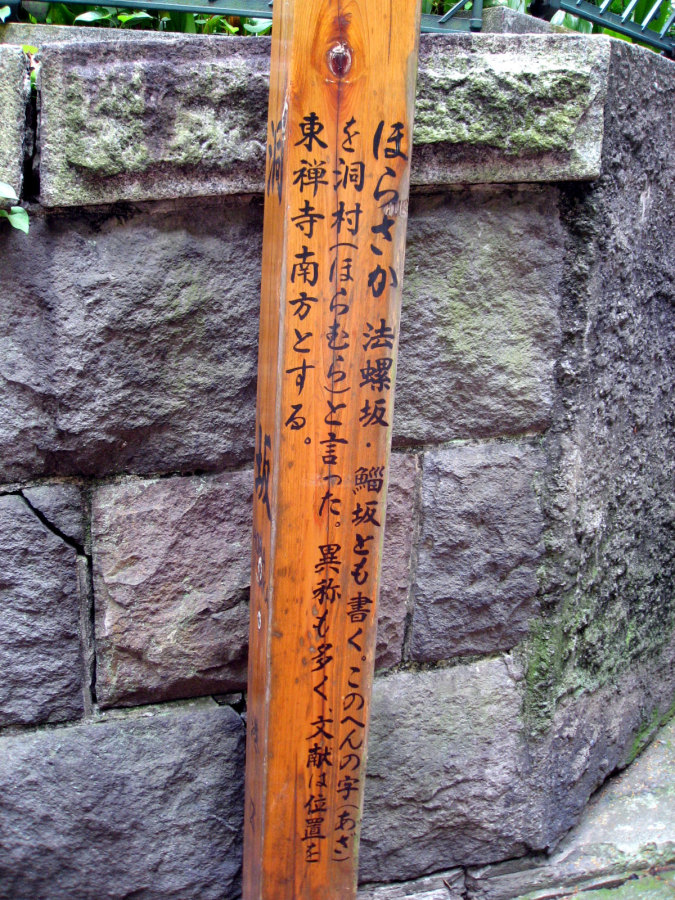 ほらさか 法螺坂・鯔坂とも書く。このへんの字(あざ)
を洞村(ほらむら)と言った。異称も多く、文献は位置を
東禅寺南方とする。
洞坂